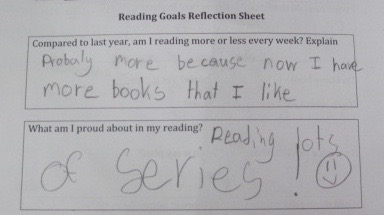 Reading Goals Reflection Sheet
Compared to last year, am I reading more or less every week? Explain
Probaly more because now I have
more books that I like
What am I proud about in my reading?
Reading lots
of series!